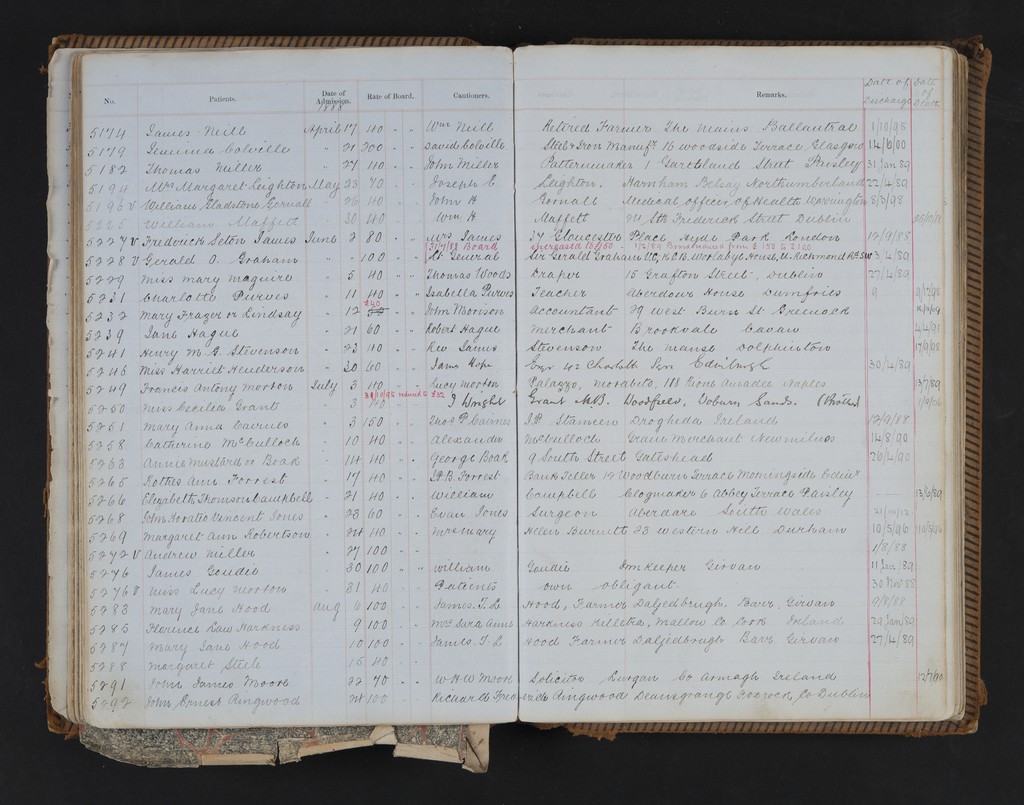 No. Patients. Date of Admission. Rate of Board. Cautioners. Remarks. Date of Discharge Date of Death
1888
5174 James Neill April 17 40 " " Wm Neill Retired Farmer The Mains Ballantrae 1/10/95
5179 Jemima Colville " 21 200 " " David Colville Steel & Iron Manufr 16 Woodside Terrace Glasgow 14/6/00
5182 Thomas Miller " 27 40 " " John Miller Patternmaker 1 Garthland Street Paisley 31 Jan 89
5194 Mrs Margaret Leighton May 23 70 " " Joseph E Leighton. Harnham Belsay Northumberland 22/4/89
5196 v William Gladstone Gornall " 26 40 " " John H Gornall Medical officer of Health Warrington
5225 William Maffett " 30 40 " " Wm H Maffett St Frederick Street Dublin
5227 v Frederick Seton James June 2 80 " " Mrs James 37 Gloucester Place Hyde Park London 12/9/88
31/7/88 Board increased to £150
5228 v Gerald O. Graham " " 100 " " Lt General Sir Gerald Graham VC, K.C.B. House, Richmond 3/4/89
5229 Miss Mary Maguire " 5 40 " " Thomas Woods Draper 15 Grafton Street, Dublin 27/4/89
5231 Charlotte Purves " 11 40 " " Isabella Purves Teacher Aberdour House Dumfries 9
£40
5232 Mary Frazer or Lindsay " 12 " " John Morison Accountant 29 West Burn St Greenock
5239 Jane Hague " 21 60 " " Robert Hague Merchant Brookvale Cavan 4/4/91
5241 Henry M. G. Stevenson " 23 40 " " Rev James Stevenson The Manse Dolphinton 17/9/08
5246 Miss Harriet Henderson " 30 60 " " James Hope Esqr 42 Charlotte Sqre Edinburgh 30/4/89
5249 Francis Antony Morton July 3 40 " " Lucy Morton Palazzo, Morabito, 188 Rione Amadeo Naples 13/7/89
31/10/95 reduced to £52
5250 Miss Cecilia Grant " 3 " " J Wright Grant M.B. Woodfield, Woburn Sands. (Brother)
5251 Mary Anna Cairnes " 3 150 " " Thos P. Cairnes J.P. Stameen Drogheda Ireland 12/9/88
5258 Catherine McCulloch " 10 40 " " Alexander McCulloch Grain Merchant Newmilns 14/8/90
5263 Annie Mustard or Boak " 14 40 " " George Boak 9 South Street Gateshead 26/4/90
5265 Kottes Ann Forrest " 17 40 " " J.B. Forrest Bank Teller 12 Woodburn Terrace Morningside Edinr
5266 Elizabeth Thomson Campbell " 21 40 " " William Campbell Clogmaker 6 Abbey Terrace Paisley 13/6/89
5268 John Horatio Vincent Jones " 23 60 " " Evan Jones Surgeon Aberdare South Wales 21/10/12
5269 Margaret Ann Robertson " 24 40 " " Mrs Mary Helen Burnett 23 Western Hill Durham 10/5/96 10/5/96
5272 v Andrew Miller " 27 100 " " 1/8/88
5276 James Goudie " 30 100 " " William Goudie Innkeeper Girvan 11 Jan 89
5276 v Miss Lucy Morton " 31 40 " " Patients own obligant 30 Nov 88
5283 Mary Jane Hood Aug 6 100 " " James T. L Hood, Farmer Daljedburgh Barr, Girvan 9/8/88
5285 Florence Law Harkness 9 100 " " Mrs Sara Anne Harkness Killetra, Mallow Co Cork Ireland 29 Jan 89
5287 Mary Jane Hood 10 100 " " James T. L Hood Farmer Daljedburgh Barr Girvan 27/4/89
5288 Margaret Steele 15 40 " "
5291 John James Moore 22 70 " " W H W Moore Solicitor Lurgan Co Armagh Ireland
5292 John Ernest Ringwood 24 100 " " Richard Frederick Ringwood Deansgrange Foxrock, Co Dublin